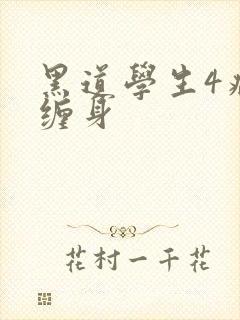 黑道學生4
缠身
花村一千花